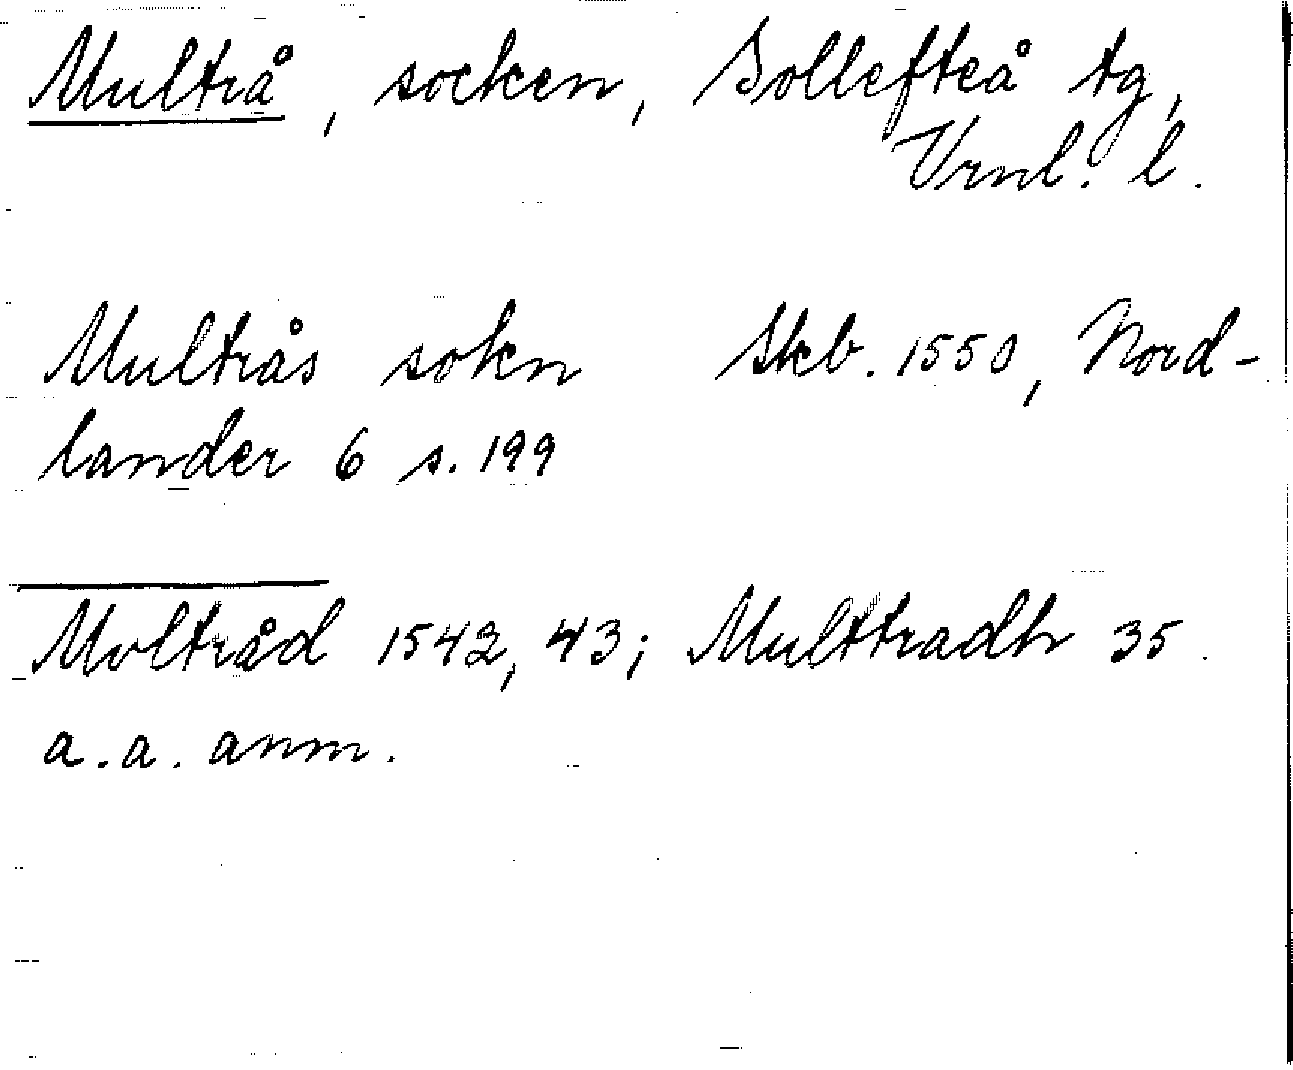 Multrå, socken, Sollefteå tg,
Vrnl. l.
Multrås sokn Skb. 1550, Nord-
lander 6 s. 199
Moltråd 1542, 43; Multtradh 35.
a.a. anm.